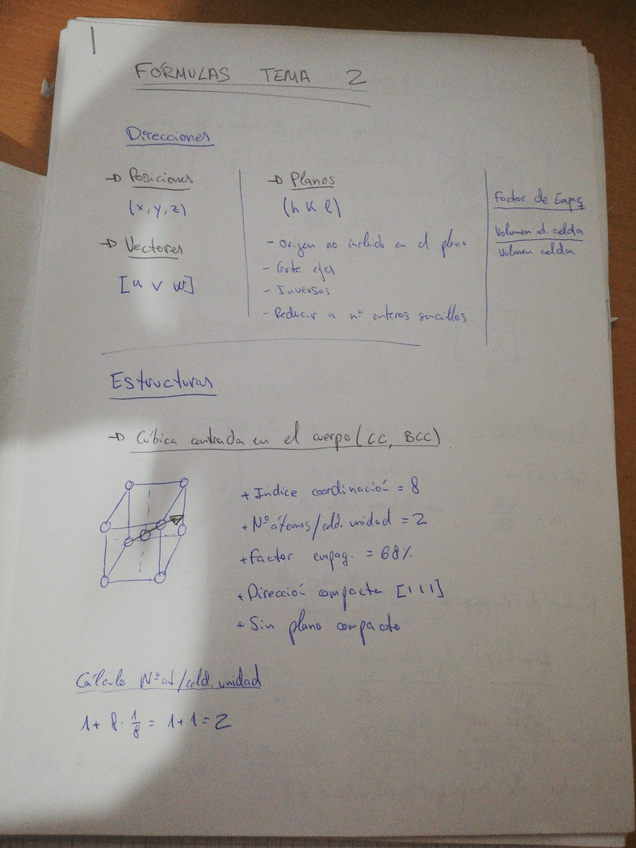 1
FÓRMULAS TEMA 2
Direcciones
→ Posiciones
(x, y, z)
→ Vectores
[u v w]
→ Planos
(h K l)
- Origen no incluido en el plano
- Corte ejes
- Inversos
- Reducir a nº enteros sencillos
Factor de Empaq
Volumen at. celda
Volumen celda
Estructuras
→ Cúbica centrada en el cuerpo (CC, BCC)
+ Indice coordinación = 8
+ Nº átomos/celd. unidad = 2
+ Factor empaq. = 68%
+ Dirección compacta [111]
+ Sin plano compacto
Cálculo Nº at/celd. unidad
1 + 8 · 1/8 = 1 + 1 = 2